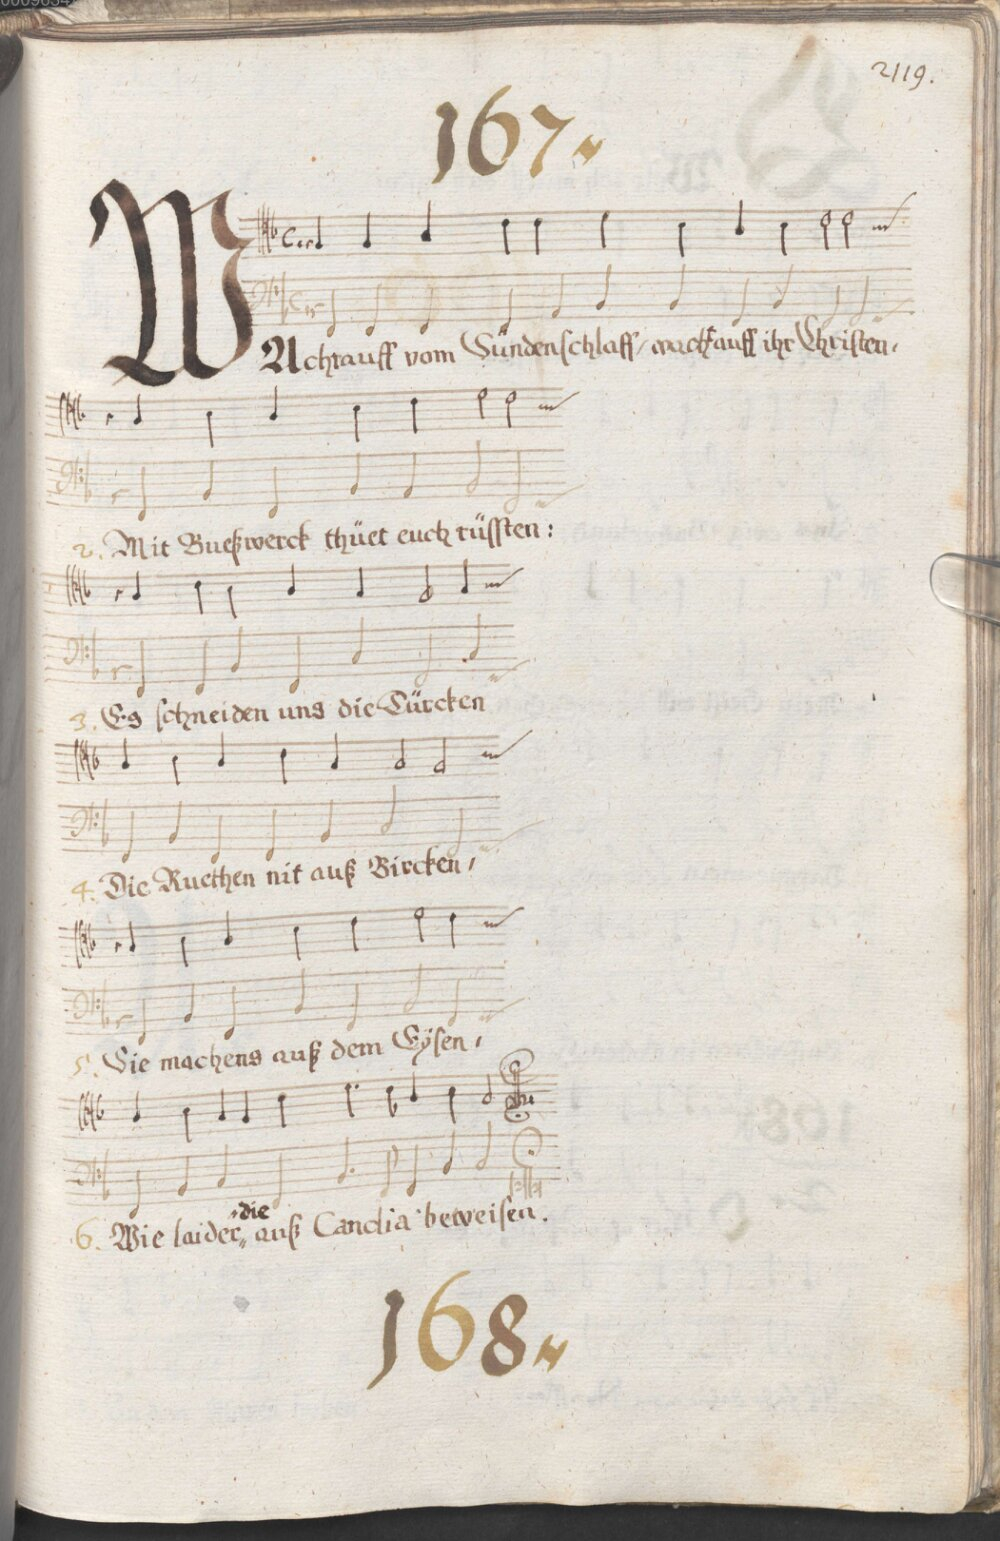 2119.
167
WAchtauff vom Sündenschlaff, wacht auff ihr Christen,
2. Mit Bueßwerck thüet euch rüssten:
3. Es schneiden uns die Türcken
4. Die Ruethen nit auß Bircken,
5. Sie machens auß dem Eÿsen,
die
6. Wie laider, auß Candia beweisen.
168